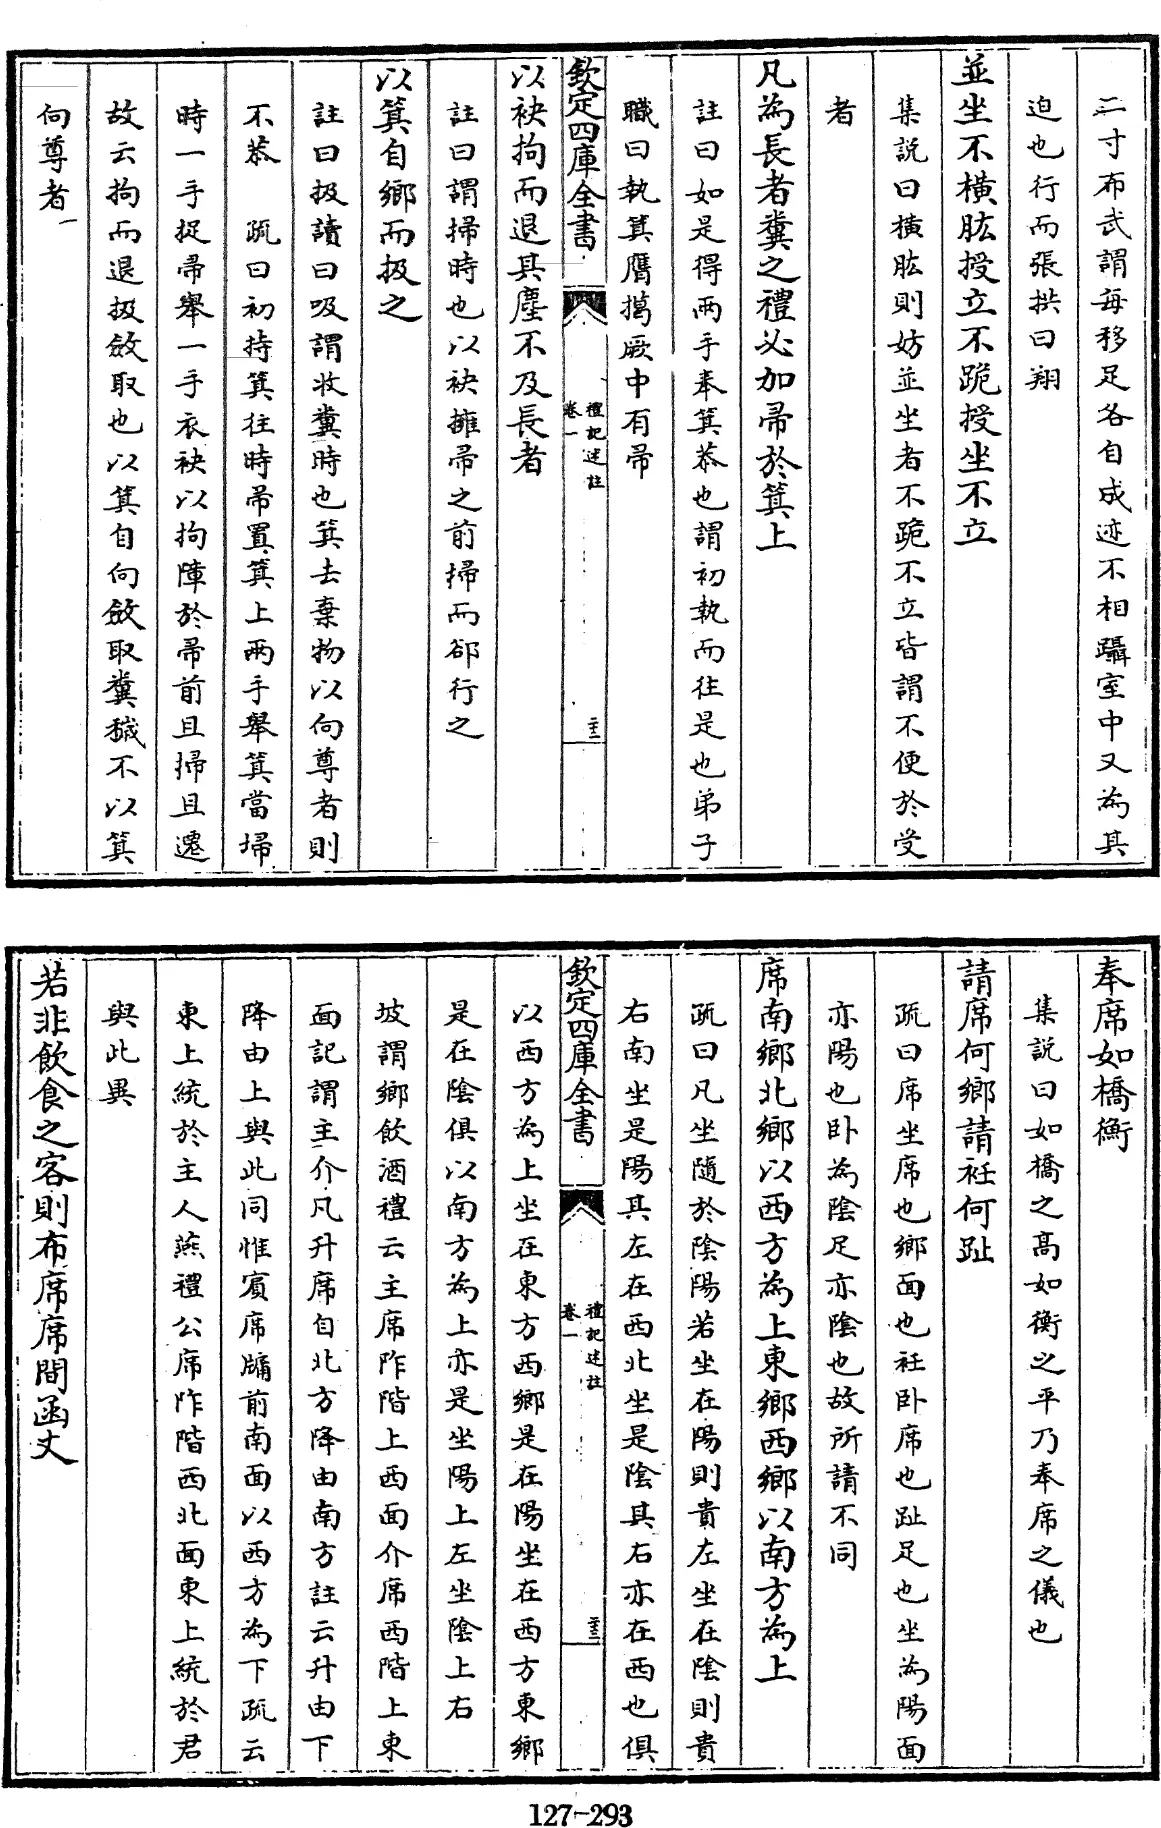 二寸布武謂每移足各自成迹不相躡室中又為其
迫也行而張拱曰翔
並坐不橫肱授立不跪授坐不立
集説曰橫肱則妨並坐者不跪不立皆謂不便於受
者
凡為長者糞之禮必加帚於箕上
註曰如是得兩手奉箕恭也謂初執而往是也弟子
職曰執箕膺擖厥中有帚
欽定四庫全書
禮記述註
卷一
二十二
以袂拘而退其塵不及長者
註曰謂掃時也以袂擁帚之前掃而郤行之
以箕自鄉而扱之
註曰扱讀曰吸謂收糞時也箕去棄物以向尊者則
不恭　疏曰初持箕往時帚置箕上兩手舉箕當埽
時一手捉帚舉一手衣袂以拘障於帚前且掃且遷
故云拘而退扱斂取也以箕自向斂取糞穢不以箕
向尊者
奉席如橋衡
集説曰如橋之高如衡之平乃奉席之儀也
請席何鄉請衽何趾
疏曰席坐席也鄉面也衽卧席也趾足也坐為陽面
亦陽也卧為陰足亦陰也故所請不同
席南鄉北鄉以西方為上東鄉西鄉以南方為上
疏曰凡坐隨於陰陽若坐在陽則貴左坐在陰則貴
右南坐是陽其左在西北坐是陰其右亦在西也俱
欽定四庫全書
禮記述註
卷一
二十三
以西方為上坐在東方西鄉是在陽坐在西方東鄉
是在陰俱以南方為上亦是坐陽上左坐陰上右
坡謂鄉飲酒禮云主席阼階上西面介席西階上東
面記謂主介凡升席自北方降由南方註云升由下
降由上與此同惟賓席牖前南面以西方為下疏云
東上統於主人燕禮公席阼階西北面東上統於君
與此異
若非飲食之客則布席席間函丈
127-293